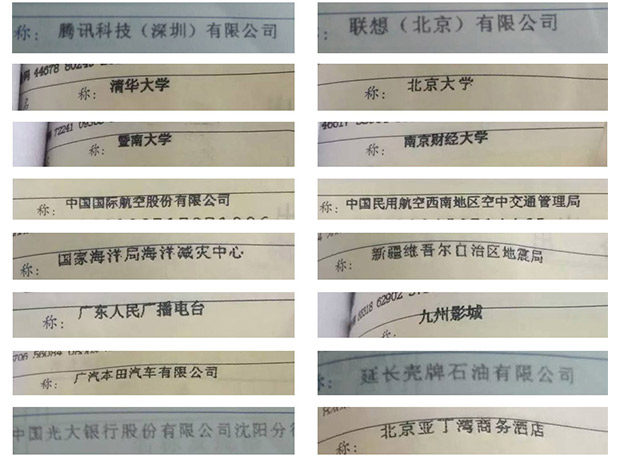 称: 腾讯科技（深圳）有限公司
称: 联想（北京）有限公司
44678
称: 清华大学
称: 北京大学
72241
称: 暨南大学
称: 南京财经大学
称: 中国国际航空股份有限公司
称: 中国民用航空西南地区空中交通管理局
称: 国家海洋局海洋减灾中心
称: 新疆维吾尔自治区地震局
称: 广东人民广播电台
62902
称: 九州影城
称: 广汽本田汽车有限公司
称: 延长壳牌石油有限公司
中国光大银行股份有限公司沈阳分行
称: 北京亚丁湾商务酒店